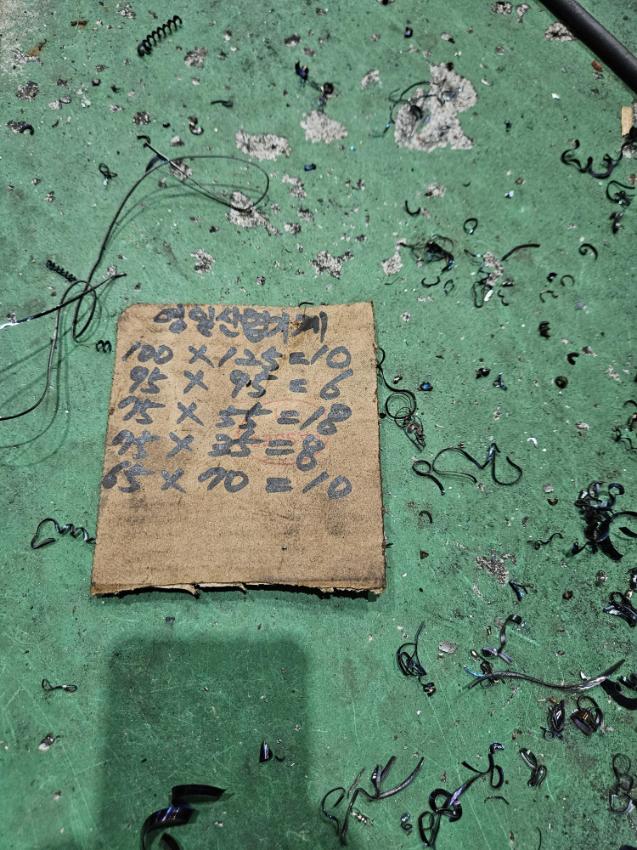 영일산업기계
100 × 125 = 10
95 × 95 = 6
75 × 55 = 18
75 × 35 = 8
65 × 70 = 10